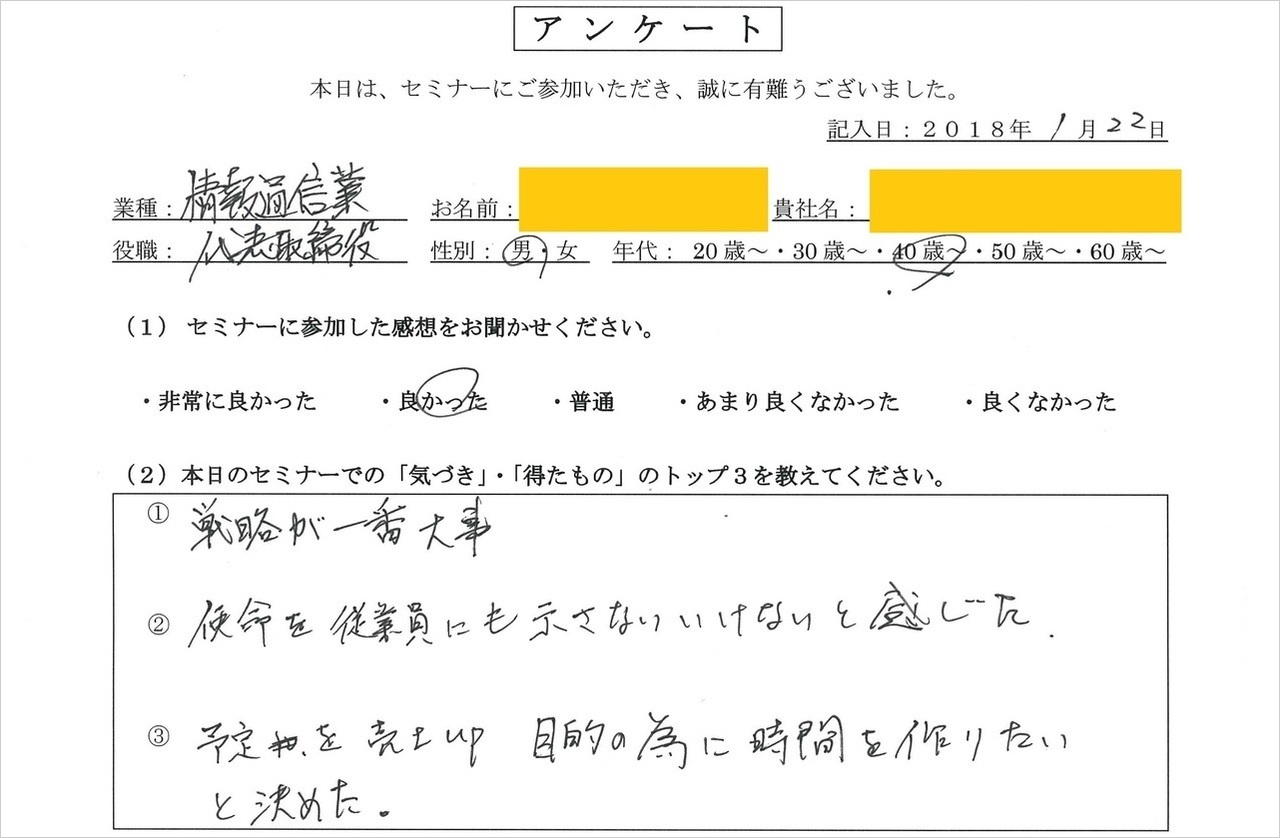 アンケート
本日は、セミナーにご参加いただき、誠に有難うございました。
記入日：２０１８年 1月22日
業種：情報通信業 お名前： 貴社名：
役職：代表取締役 性別：男・女 年代：20歳～・30歳～・40歳～・50歳～・60歳～
（１） セミナーに参加した感想をお聞かせください。
・非常に良かった ・良かった ・普通 ・あまり良くなかった ・良くなかった
（２）本日のセミナーでの「気づき」・「得たもの」のトップ３を教えてください。
① 戦略が一番大事
② 使命を従業員にも示さないいけないと感じた.
③ 予定を売上up 目的の為に時間を作りたい
と決めた。